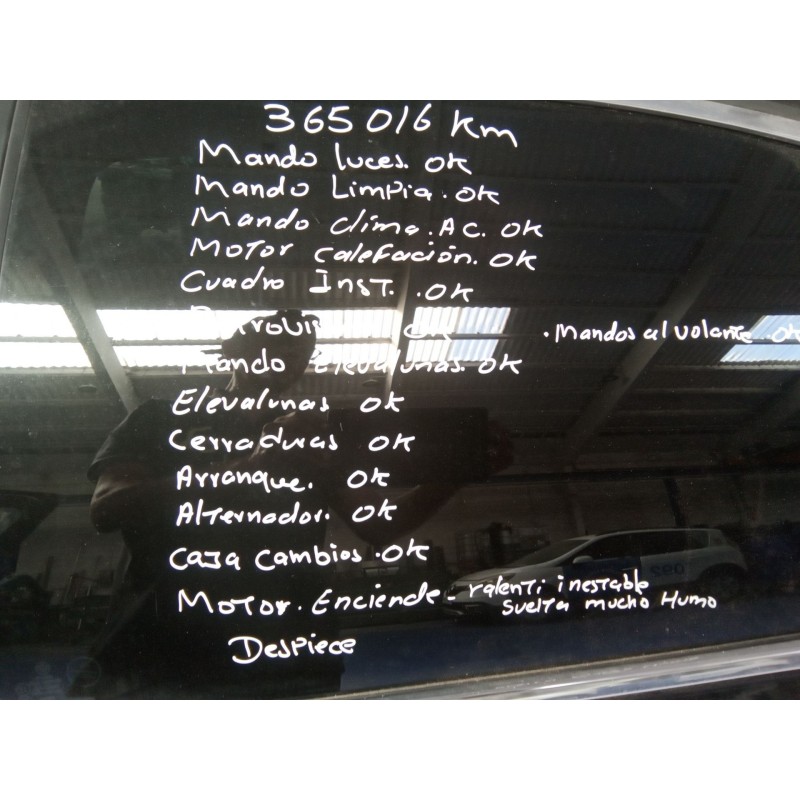 365016 Km
Mando luces. OK
Mando Limpia. OK
Mando clima. A C. OK
Motor calefación. OK
Cuadro Inst. .OK
OK
. Mandos al volante . OK
Mando Elevalunas. OK
Elevalunas OK
Cerraduras OK
Arranque. OK
Alternador. OK
Caja cambios .OK
Motor. Enciende - ralenti inestable
suelta mucho Humo
Despiece